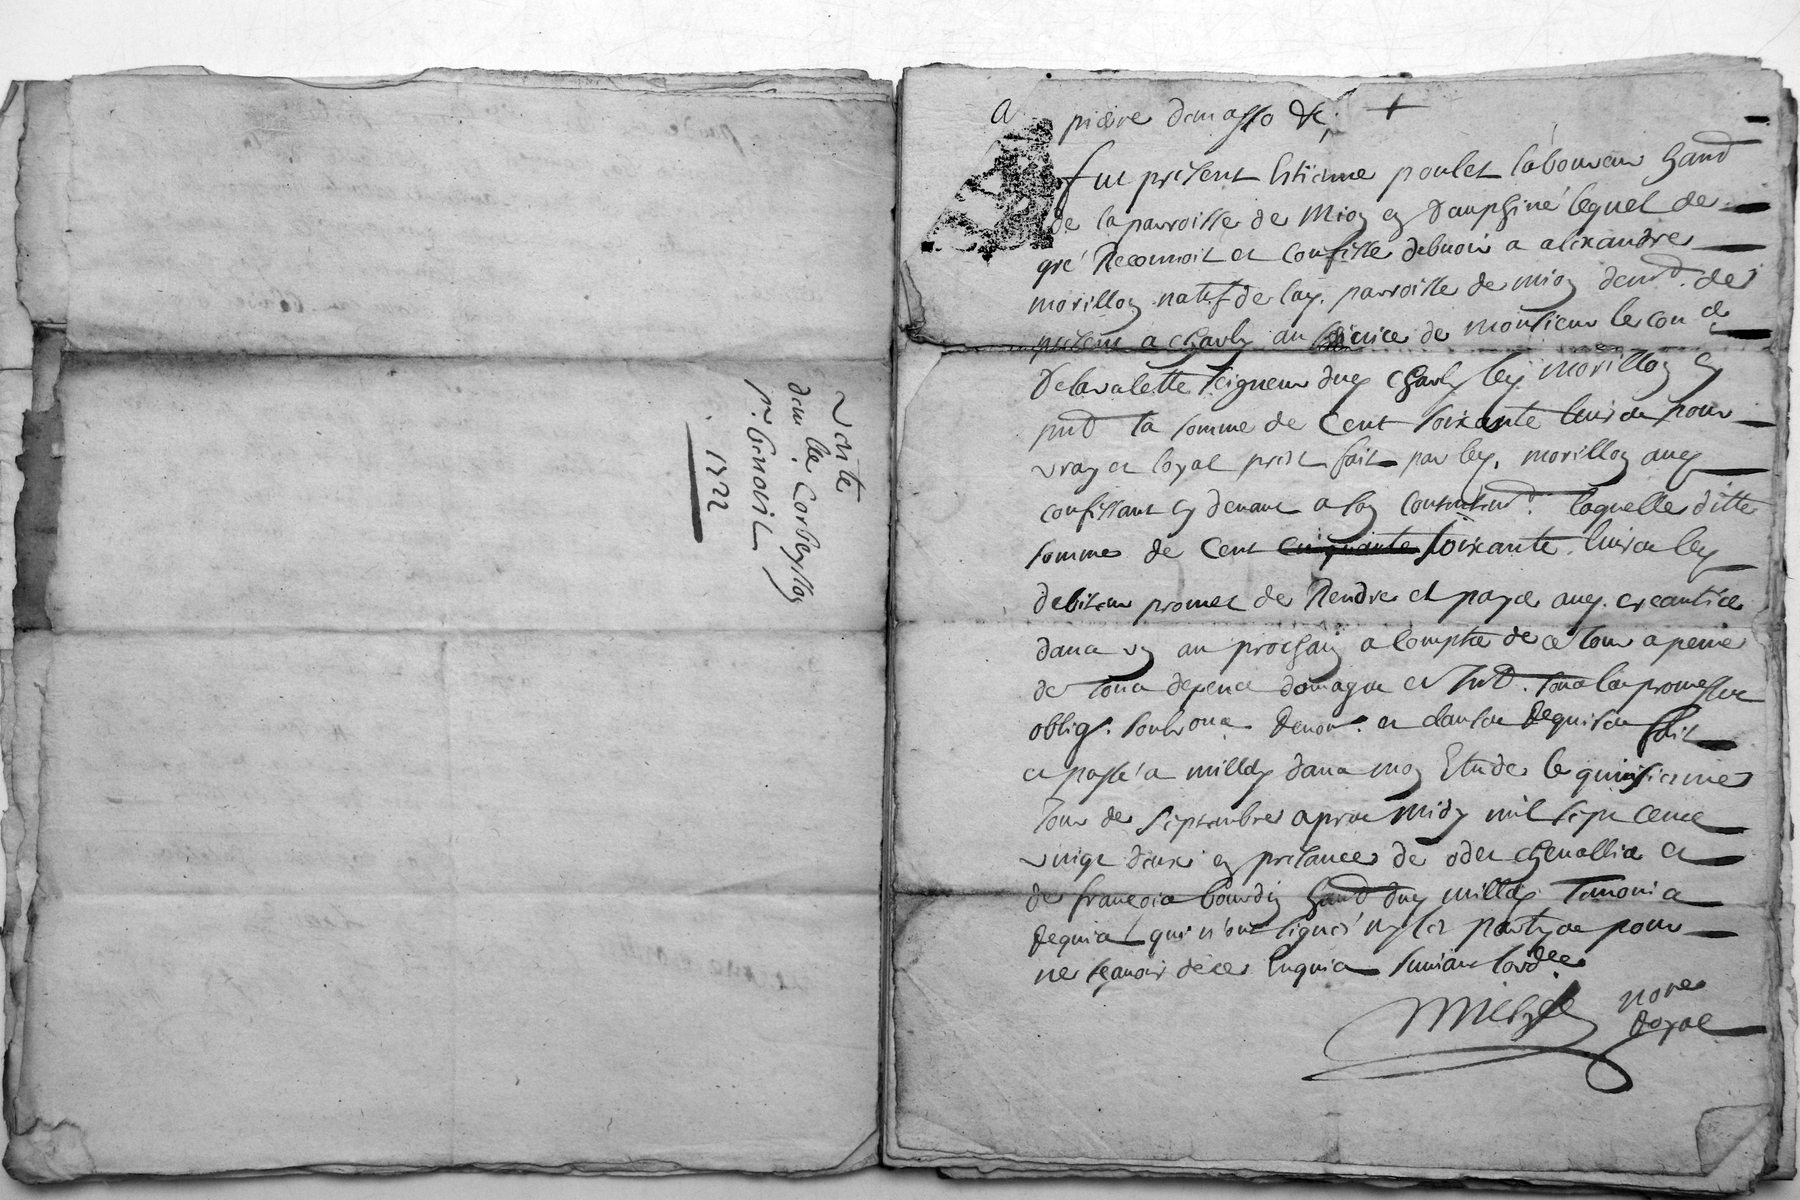 Vente
dem.lle Corbeysson
pr. benoist
1722
a pierre demasso &c; +
fut present Estienne poulet laboureur habt
de la parroisse de Mion en Dauphiné lequel de
gré Reconnoit et confesse debvoir a alexandre
morillon natif de lad. parroisse de mion demt. de
present a Charly au service de monsieur le con de
Delavalette seigneur dud Charly led morillon
pnt la somme de Cent soixante livres pour
vray et loyal prest fait par led. morillon aud
confessant cy devant a son contentemt. laquelle ditte
somme de Cent cinquante soixante livres led
debiteur promet de Rendre et payer aud. creantier
dans un an prochain a compter de ce Jour a peine
de tous depens domages et Int. sous les promesses
oblig. soubmons Renon. et clauses Requises fait
et passé a millery dans mon Etude le quinsieme
Jour de Septembre apres midy mil sept cens
vingt deux en presance de odet chevallier et
de françois bourdin habt dud millery Temoins
Requis qui n'ont signé ny les partyes pour
ne sçavoir de ce Enquis suivant lordce
not.re
Royal